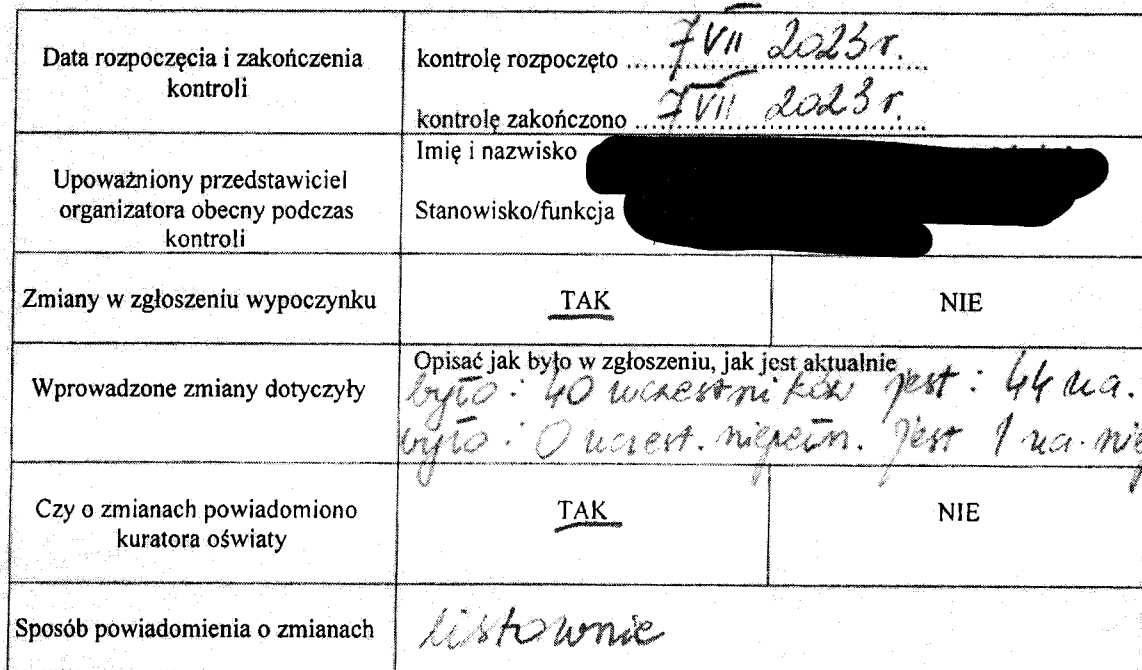 Data rozpoczęcia i zakończenia
kontroli
kontrolę rozpoczęto 7 VII 2023 r.
kontrolę zakończono 7 VII 2023 r.
Upoważniony przedstawiciel
organizatora obecny podczas
kontroli
Imię i nazwisko
Stanowisko/funkcja
Zmiany w zgłoszeniu wypoczynku
TAK
NIE
Wprowadzone zmiany dotyczyły
Opisać jak było w zgłoszeniu, jak jest aktualnie
było: 40 uczestników jest: 44 ucz.
było: 0 uczest. niepełn. jest 1 ucz. nie
Czy o zmianach powiadomiono
kuratora oświaty
TAK
NIE
Sposób powiadomienia o zmianach
listownie